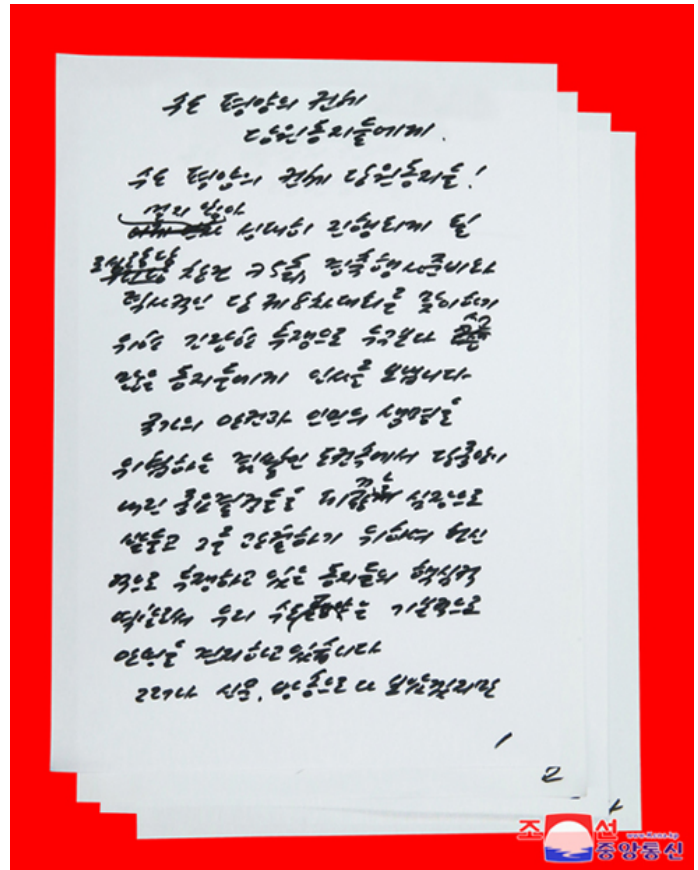 수도 평양의 전체
당원동지들에게.
수도 평양의 전체 당원동지들!
성대히 진행되게 될
당창건 75돐 경축행사준비와
력사적인 당 제8차대회를 맞이하기
위한 긴장한 투쟁으로 누구보다 수고
많은 동지들에게 인사를 보냅니다.
국가의 안전과 인민의 생명을
위협하는 돌발적인 도전속에서 당중앙이
내린 중요결정들을 심장으로
받들고 그를 관철하기 위하여 헌신
적으로 투쟁하고 있는 동지들의 핵심적
역할로써 우리 수도는 기본적으로
안정을 견지하고있습니다
그러나 신문, 방송으로 다 보았겠지만
1
2
조선
www.kcna.kp
중앙통신